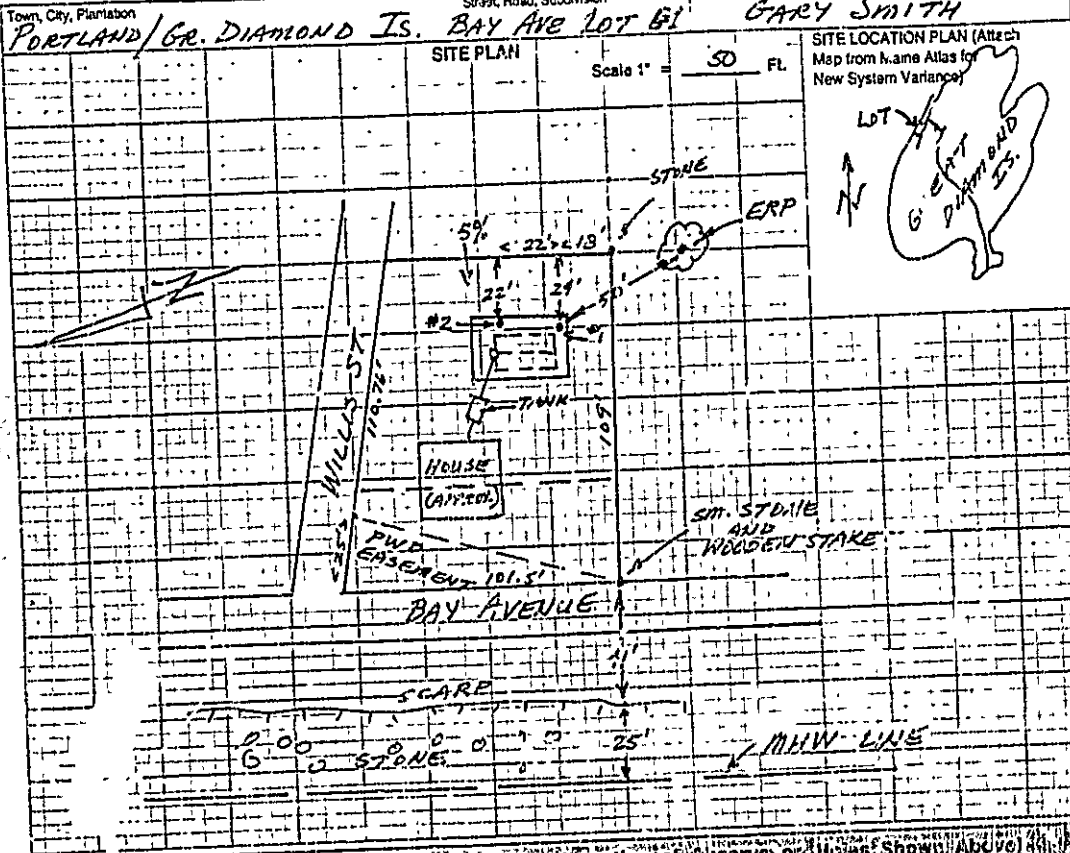 Town, City, Plantation
Street, Road, Subdivision
PORTLAND/GR. DIAMOND IS. BAY AVE LOT GARY SMITH
SITE PLAN
Scale 1" = 50 Ft.
SITE LOCATION PLAN (Attach
Map from Maine Atlas for
New System Variance)
LOT
N
GREAT
DIAMOND
IS.
STONE
ERP
5%
22' 13'
22' 24'
50'
#2
#1
TANK
WILLIS ST
110.76'
109'
HOUSE
(APPROX.)
SM. STONE
AND
WOODEN STAKE
25'
PWD
EASEMENT 101.5'
BAY AVENUE
SCARP
STONE
25'
MHW LINE
Shown Above)